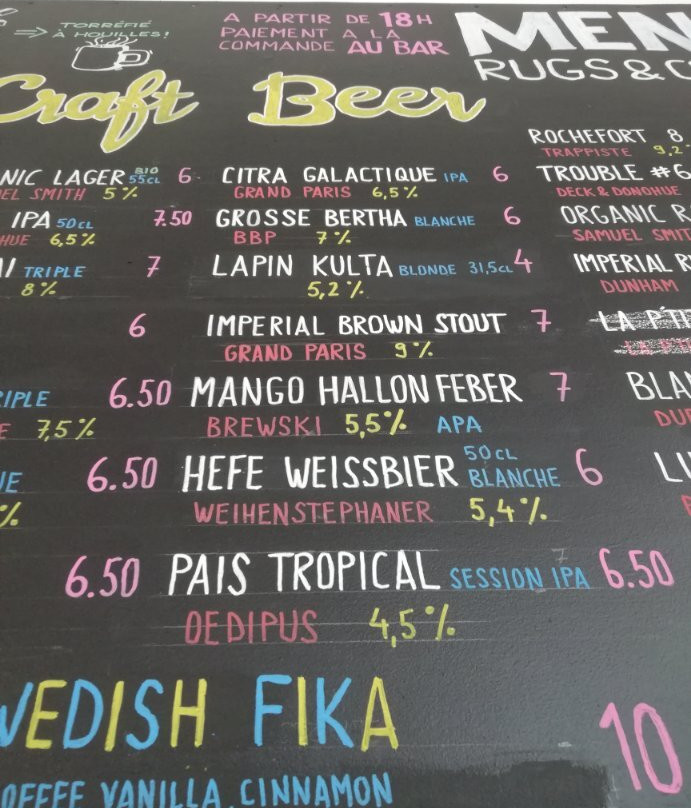 TORRÉFIÉ
À HOUILLES!
A PARTIR DE 18H
PAIEMENT A LA
COMMANDE AU BAR
MEN
RUGS & C
Craft Beer
NIC LAGER BIO 55CL 6
EL SMITH 5%
IPA 50CL 7.50
HUE 6,5%
I TRIPLE 7
8%
6
IPLE 6.50
E 7,5%
UE 6.50
%
6.50
CITRA GALACTIQUE IPA 6
GRAND PARIS 6,5%
GROSSE BERTHA BLANCHE 6
BBP 7%
LAPIN KULTA BLONDE 31,5CL 4
5,2%
IMPERIAL BROWN STOUT 7
GRAND PARIS 9%
MANGO HALLON FEBER 7
BREWSKI 5,5% APA
HEFE WEISSBIER 50CL BLANCHE 6
WEIHENSTEPHANER 5,4%
PAIS TROPICAL SESSION IPA 6.50
OEDIPUS 4,5%
ROCHEFORT 8
TRAPPISTE 9,2
TROUBLE #6
DECK & DONOHUE
ORGANIC R
SAMUEL SMIT
IMPERIAL R
DUNHAM
LA P'TI
BLA
DU
LU
WEDISH FIKA 10
OFFEE VANILLA, CINNAMON